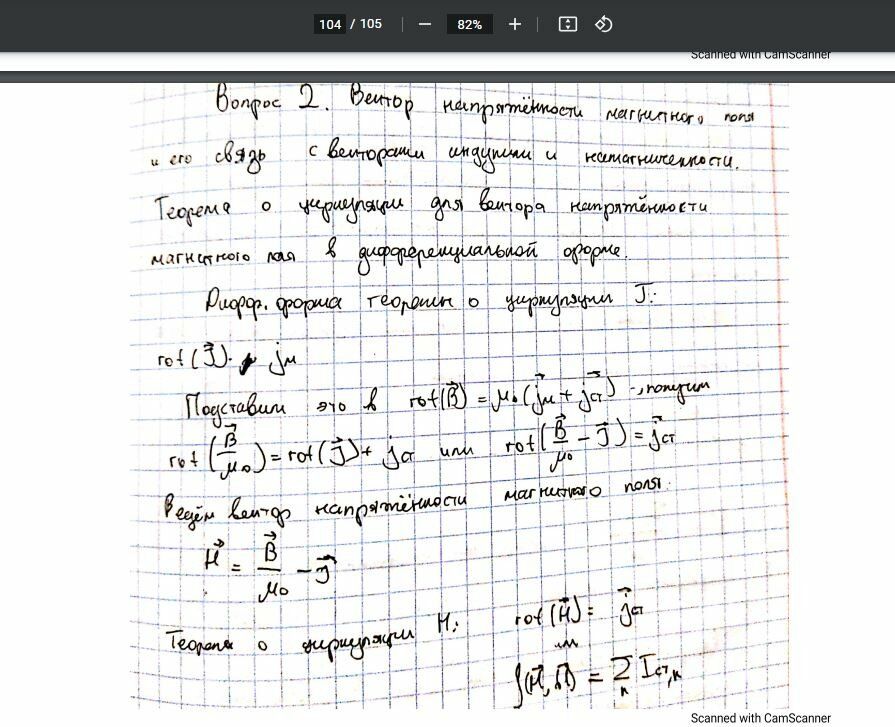 104 / 105
82%
Scanned with CamScanner
Вопрос 2. Вектор напряжённости магнитного поля
и его связь с векторами индукции и намагниченности.
Теорема о циркуляции для вектора напряжённости
магнитного поля в дифференциальной форме.
Дифф. форма теоремы о циркуляции J⃗:
rot(J⃗) = jм
Подставим это в rot(B⃗) = μ₀(j⃗м + j⃗ст) -, получим
rot(B⃗/μ₀) = rot(J⃗) + jст или rot(B⃗/μ₀ − J⃗) = j⃗ст
Введём вектор напряжённости магнитного поля:
H⃗ = B⃗/μ₀ − J⃗
Теорема о циркуляции H: rot(H⃗) = j⃗ст
или
∫(H⃗, dl⃗) = Σₖ Iст,к
Scanned with CamScanner